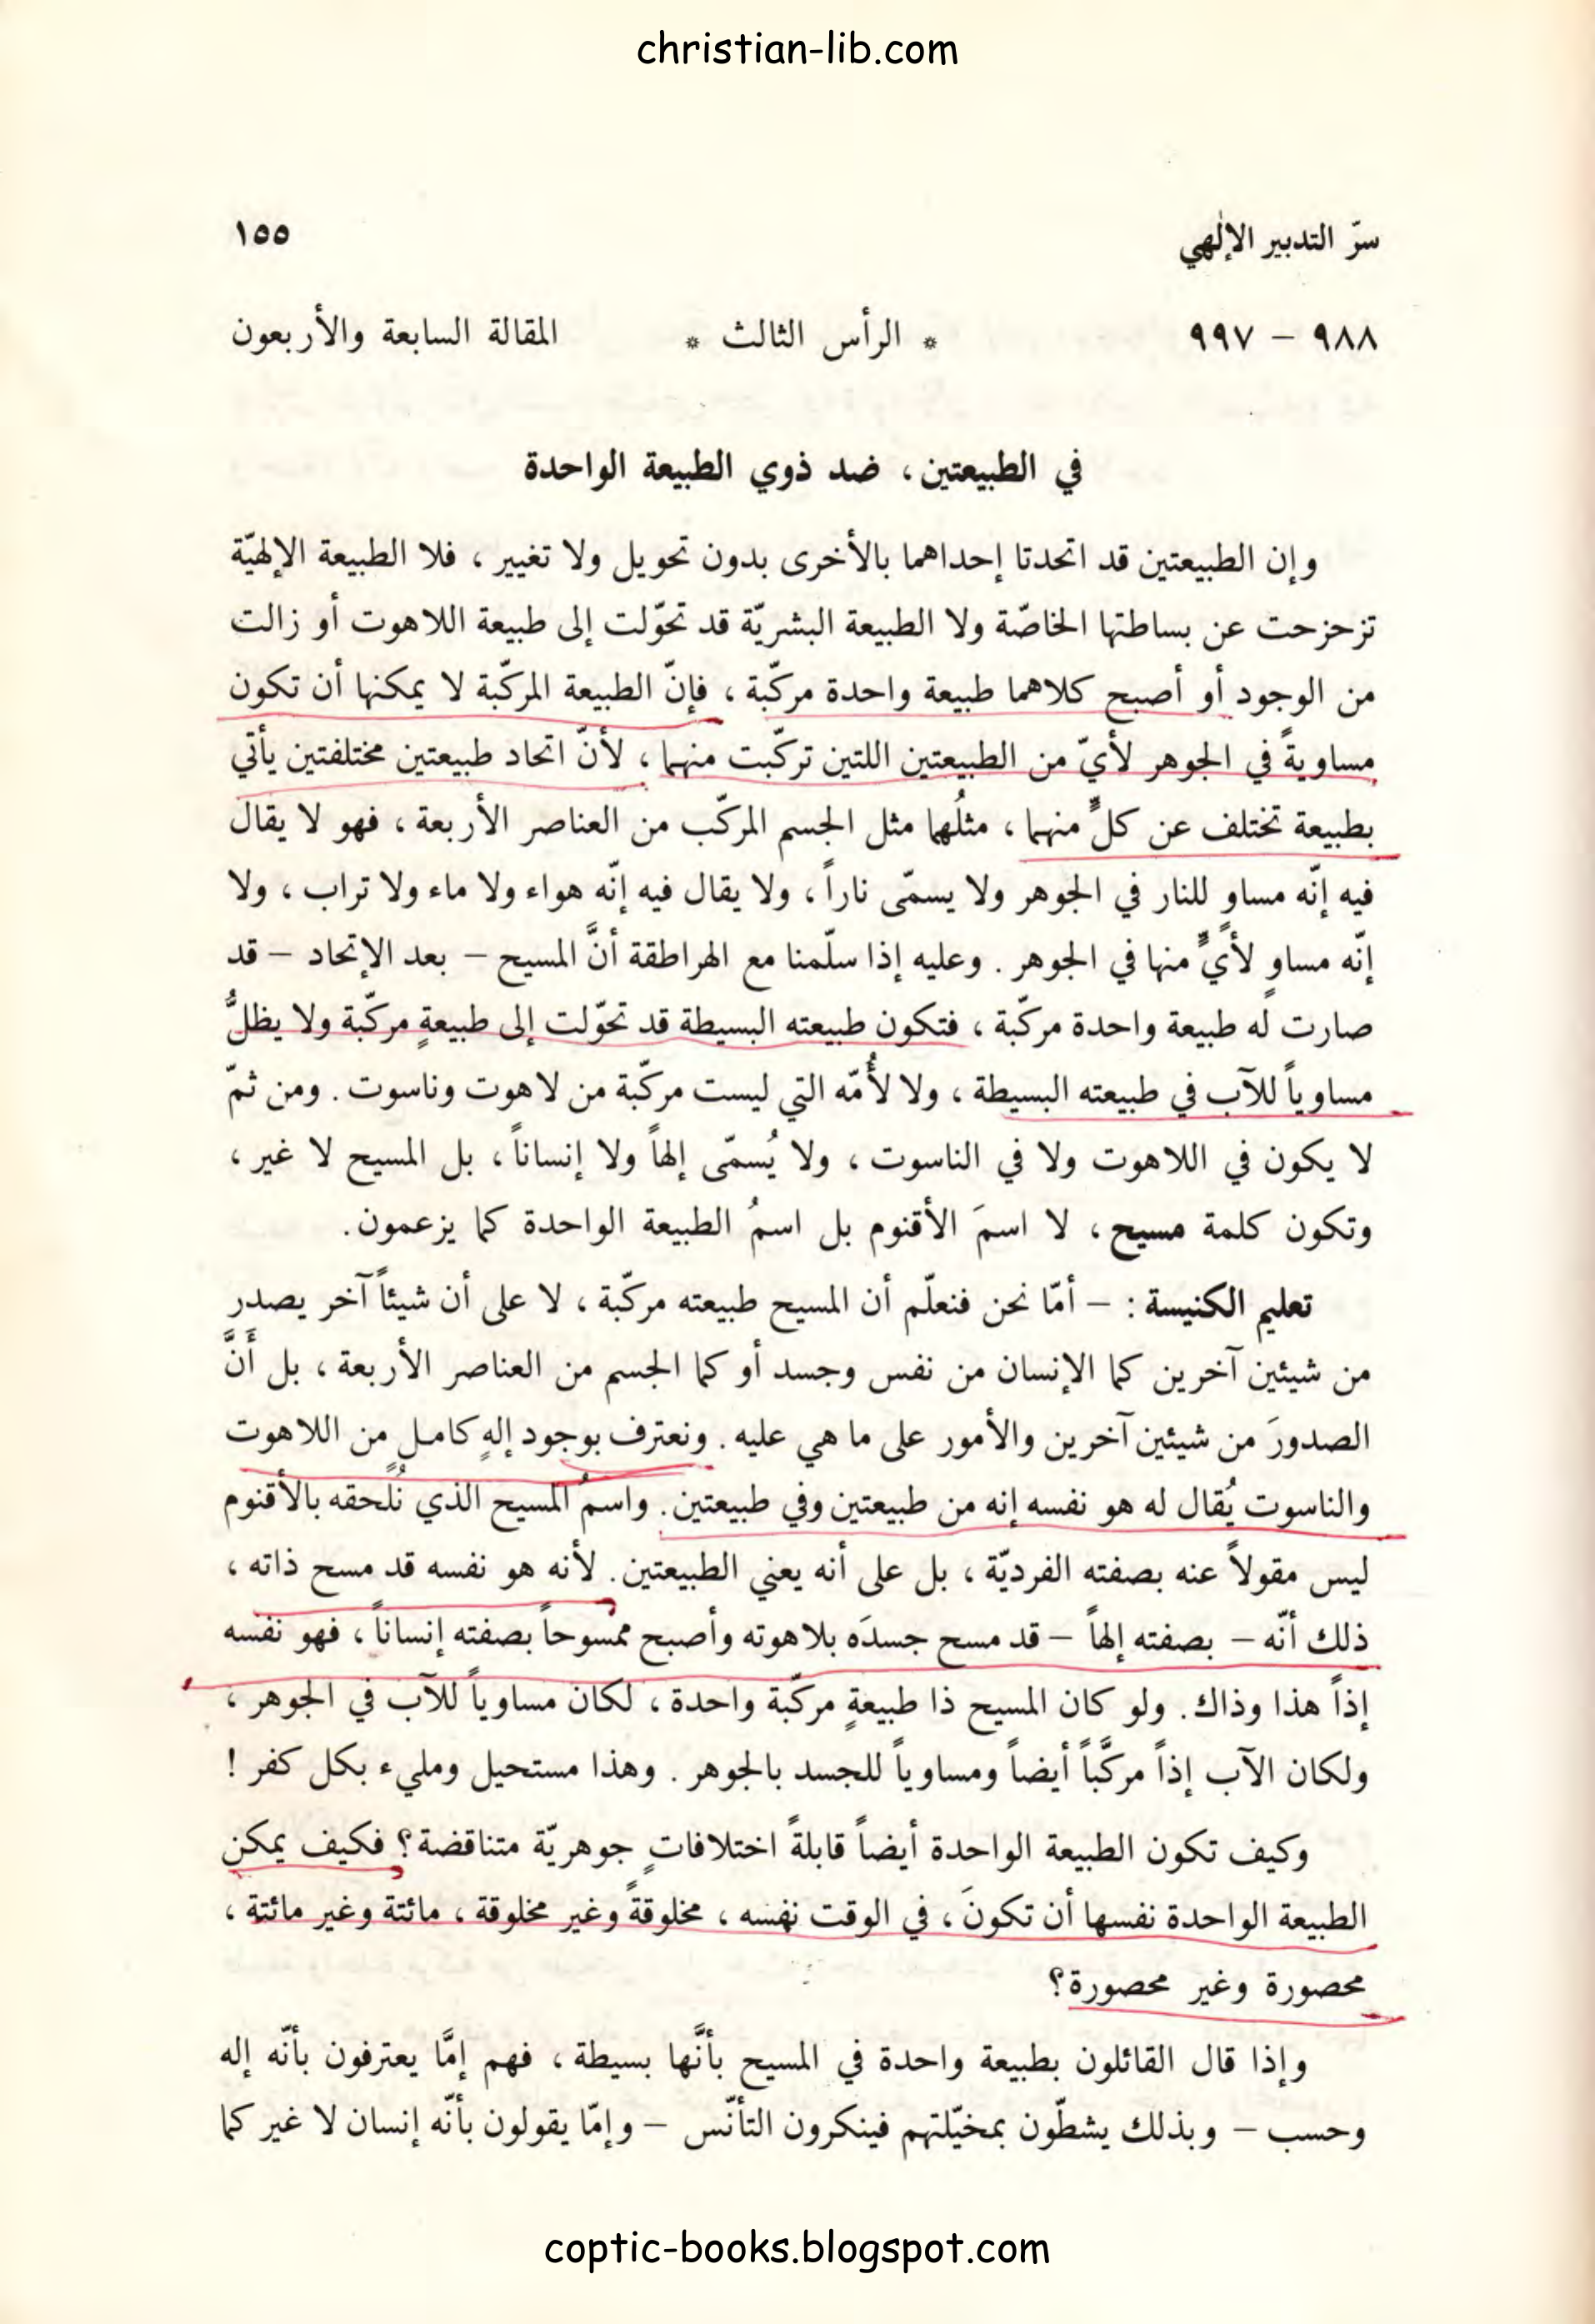 christian-lib.com
سرّ التدبير الإلٰهي ١٥٥
٩٨٨ – ٩٩٧ * الرأس الثالث * المقالة السابعة والأربعون
في الطبيعتين ، ضد ذوي الطبيعة الواحدة
وإن الطبيعتين قد اتحدتا إحداهما بالأخرى بدون تحويل ولا تغيير ، فلا الطبيعة الإلهيّة
تزحزحت عن بساطتها الخاصّة ولا الطبيعة البشريّة قد تحوّلت إلى طبيعة اللاهوت أو زالت
من الوجود أو أصبح كلاهما طبيعة واحدة مركّبة ، فإنّ الطبيعة المركّبة لا يمكنها أن تكون
مساويةً في الجوهر لأيّ من الطبيعتين اللتين تركّبت منهما ، لأنّ اتحاد طبيعتين مختلفتين يأتي
بطبيعة تختلف عن كلٍّ منهما ، مثلُهما مثل الجسم المركّب من العناصر الأربعة ، فهو لا يقال
فيه إنّه مساوٍ للنار في الجوهر ولا يسمّى ناراً ، ولا يقال فيه إنّه هواء ولا ماء ولا تراب ، ولا
إنّه مساوٍ لأيٍّ منها في الجوهر . وعليه إذا سلّمنا مع الهراطقة أنَّ المسيح – بعد الإتحاد – قد
صارت له طبيعة واحدة مركّبة ، فتكون طبيعته البسيطة قد تحوّلت إلى طبيعةٍ مركّبة ولا يظلُّ
مساوياً للآب في طبيعته البسيطة ، ولا لأُمّه التي ليست مركّبة من لاهوت وناسوت . ومن ثمّ
لا يكون في اللاهوت ولا في الناسوت ، ولا يُسمّى إلهاً ولا إنساناً ، بل المسيح لا غير ،
وتكون كلمة مسيح ، لا اسمَ الأقنوم بل اسمُ الطبيعة الواحدة كما يزعمون .
تعليم الكنيسة : – أمّا نحن فنعلّم أن المسيح طبيعته مركّبة ، لا على أن شيئاً آخر يصدر
من شيئين آخرين كما الإنسان من نفس وجسد أو كما الجسم من العناصر الأربعة ، بل أَنَّ
الصدورَ من شيئين آخرين والأمور على ما هي عليه . ونعترف بوجود إلهٍ كاملٍ من اللاهوت
والناسوت يُقال له هو نفسه إنه من طبيعتين وفي طبيعتين . واسمُ المسيح الذي نُلحقه بالأقنوم
ليس مقولاً عنه بصفته الفرديّة ، بل على أنه يعني الطبيعتين . لأنه هو نفسه قد مسح ذاته ،
ذلك أنّه – بصفته إلهاً – قد مسح جسدَه بلاهوته وأصبح ممسوحاً بصفته إنساناً ، فهو نفسه
إذاً هذا وذاك . ولو كان المسيح ذا طبيعةٍ مركّبة واحدة ، لكان مساوياً للآب في الجوهر ،
ولكان الآب إذاً مركَّباً أيضاً ومساوياً للجسد بالجوهر . وهذا مستحيل ومليء بكل كفر !
وكيف تكون الطبيعة الواحدة أيضاً قابلةً اختلافاتٍ جوهريّة متناقضة ؟ فكيف يمكن
الطبيعة الواحدة نفسها أن تكونَ ، في الوقت نفسه ، مخلوقةً وغير مخلوقة ، مائتة وغير مائتة ،
محصورة وغير محصورة ؟
وإذا قال القائلون بطبيعة واحدة في المسيح بأنَّها بسيطة ، فهم إمَّا يعترفون بأنّه إله
وحسب – وبذلك يشطّون بمخيّلتهم فينكرون التأنّس – وإمّا يقولون بأنّه إنسان لا غير كما
coptic-books.blogspot.com